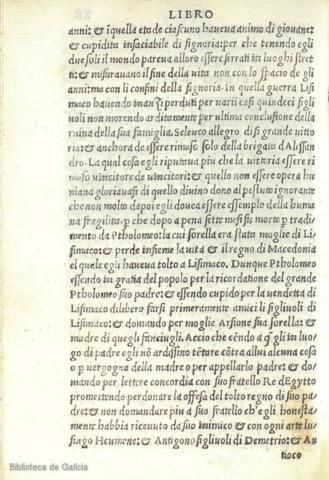 LIBRO
anni: & i quella eta de ciascuno haveva animo di giovane:
& cupidita insaciabile di signoria: per che tenendo egli
due soli il mondo pareva alloro essere serrati in luoghi stret
ti: & misuravano il fine della vita non con lo spacio de gli
anni: ma con li confini della signoria. In quella guerra Lisi
maco havendo inanzi perduti per varii casi quindeci figli
voli non morendo arditamente per ultima conclusione della
ruina della sua famiglia. Seleuco allegro di si grande vitto
ria: & anchora de essere rimaso solo della brigata d'Alissan
dro. La qual cosa egli riputava piu che la vittoria essere ri
maso vincitore de vincitori: & quello non essere opera hu
mana gloriavasi di quello divino dono al postuto ignorante
che non molto dapoi egli dovea essere essemplo della huma
na fragilita. p che dopo a pena sette mesi fu morto p tradi
mento da Ptholomeo: la cui sorella era stata moglie di Li
simaco: & perde insieme la vita & il regno di Macedonia
el quale egli haveva tolto a Lisimaco. Dunque Ptholomeo
essendo in gratia del popolo per la ricordatione del grande
Ptholomeo suo padre: & essendo cupido per la vendetta di
Lisimaco dilibero farsi primeramente amici li figliuoli di
Lisimaco: & domando per moglie Arsione sua sorella: &
madre di que gli fanciugli. Accio che cēndo a q̄ gli in luo-
go di padre egli nō ardissimo tētare cōtra allui alcuna cosa
o p vergogna della madre o per appellarlo padre: & do
mando per lettere concordia con suo fratello Re d'Egytto
promettendo perdonare la offesa del tolto regno di suo pa-
dre: & non domandare piu a suo fratello ch'egli honesta-
mente habbia ricevuto da suo inimico & con ogni arte lu-
singo Heumene: & Antigono figliuoli di Demetrio: & An
tioco
Biblioteca de Galicia